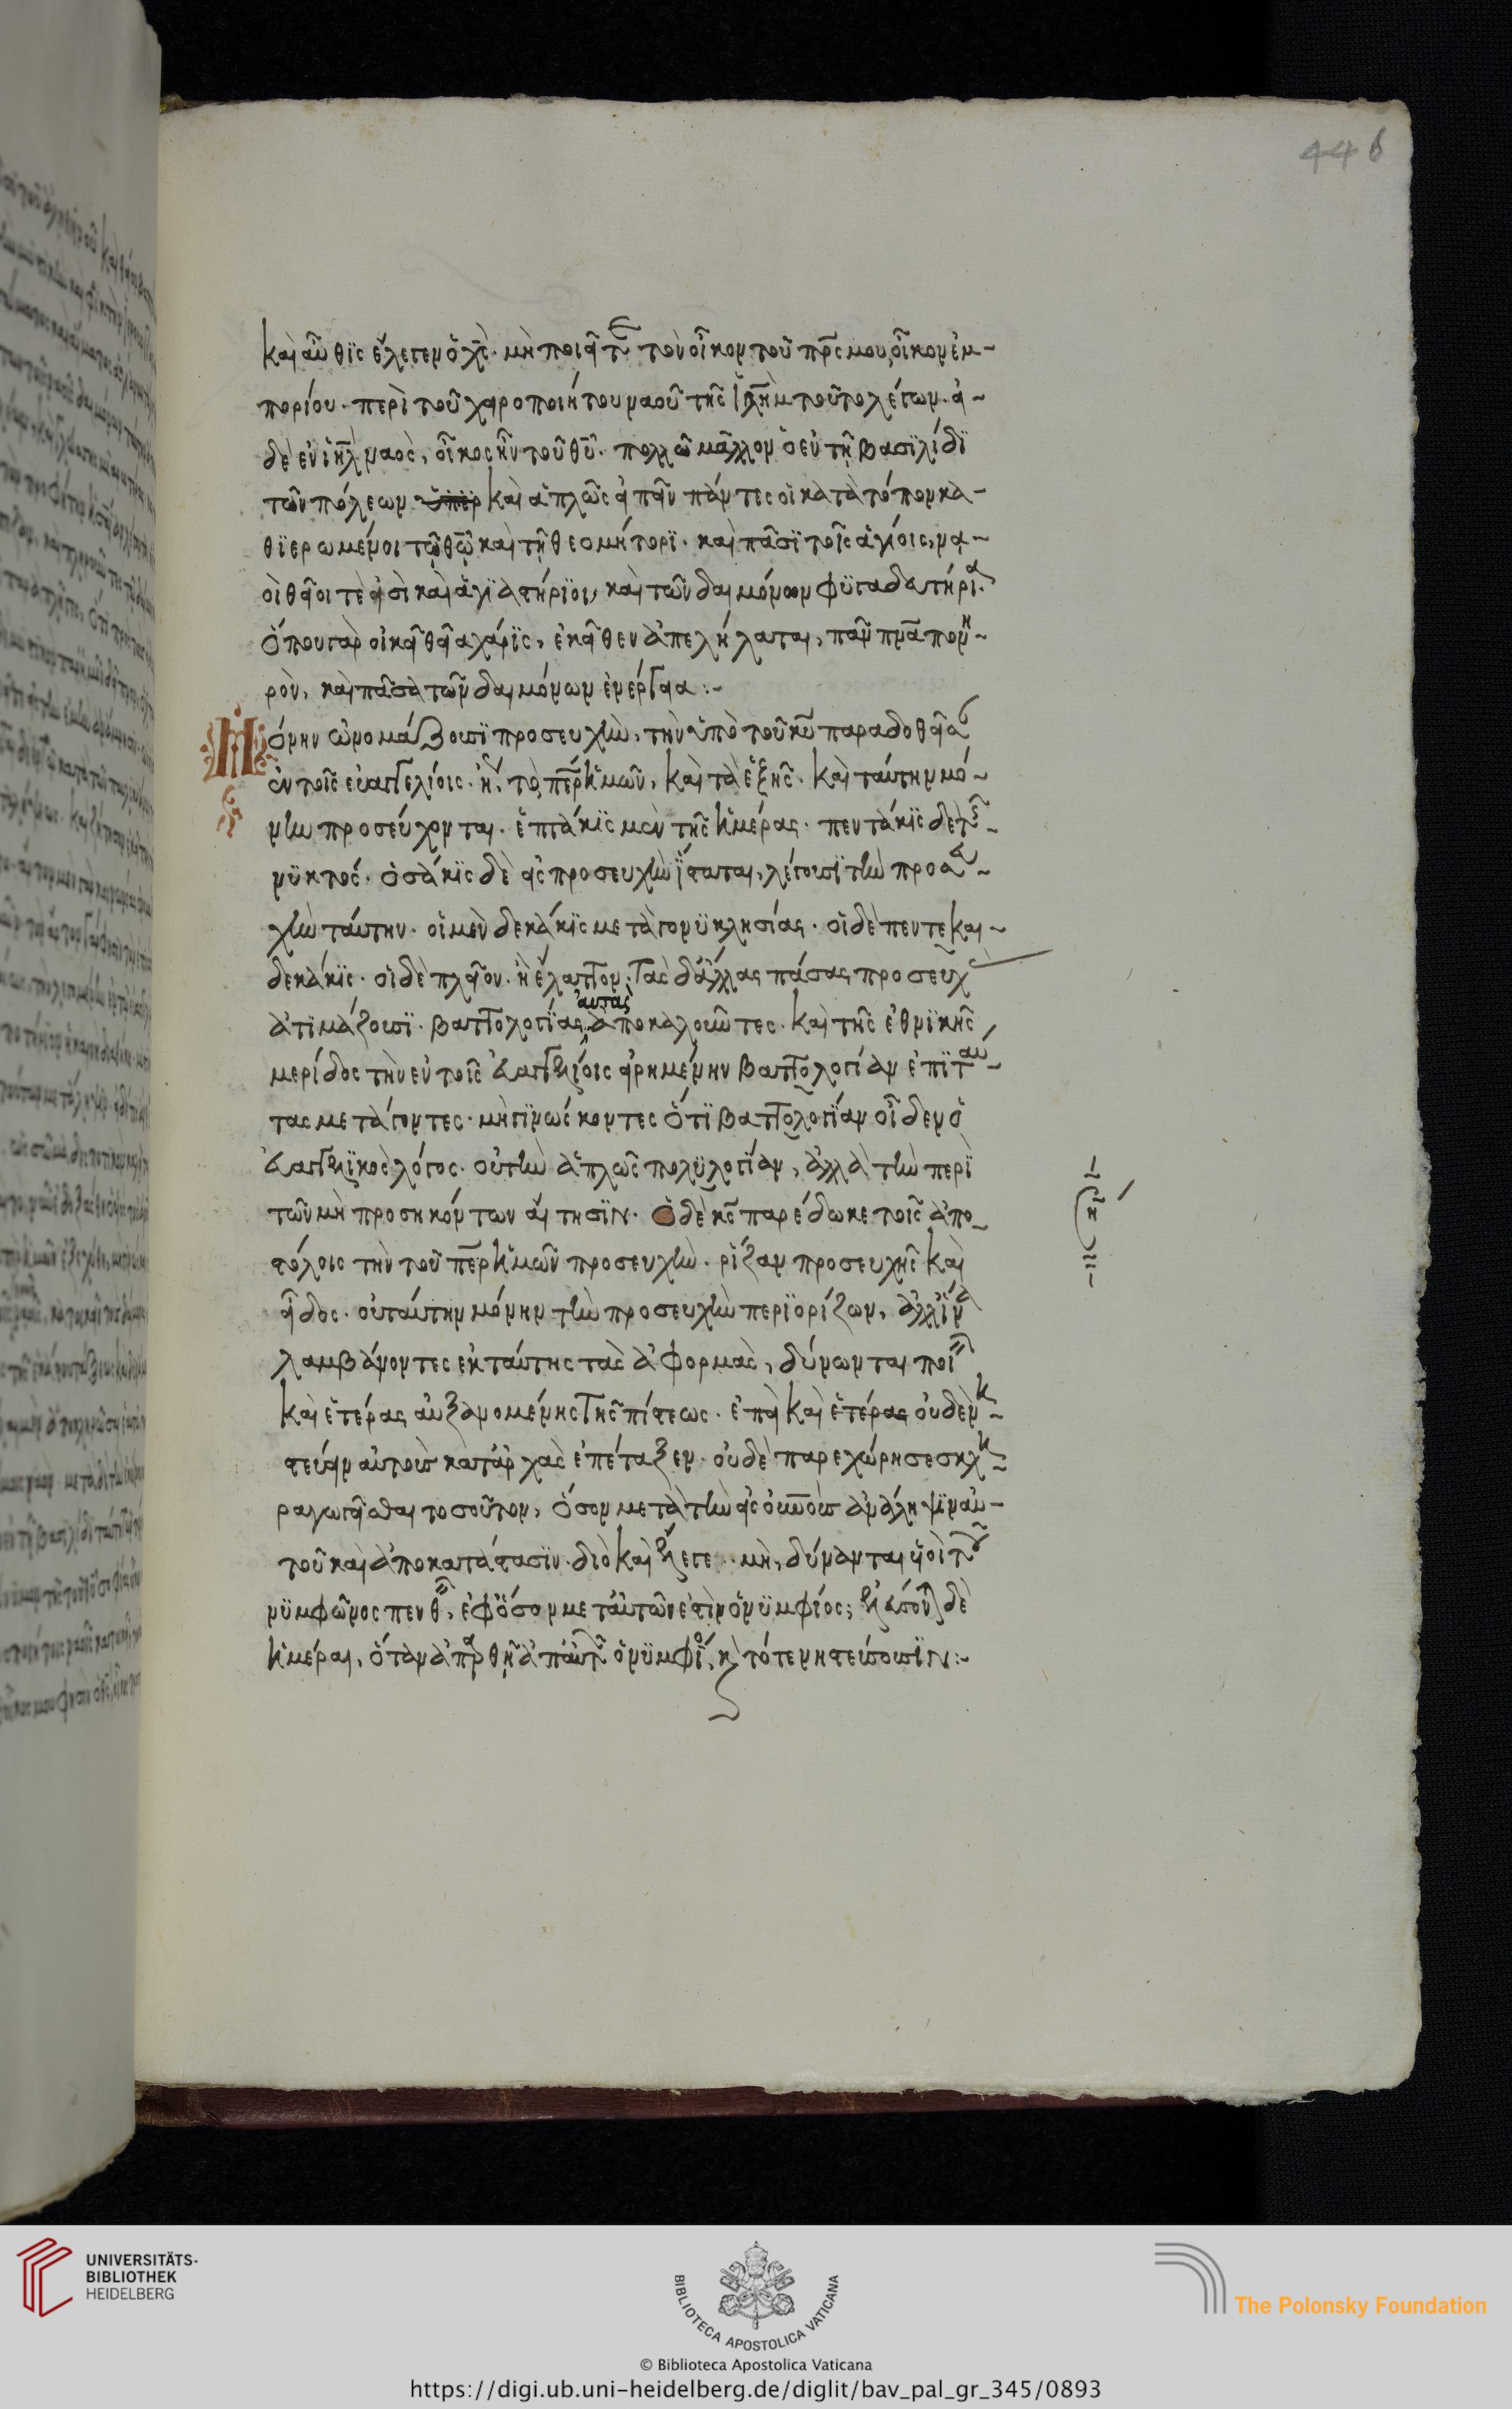 446
καὶ αὖθϊς ἔλεγεν ὁ χς̅· μὴ ποιεῖτε τὸν οἶκον τοῦ πρ̅ς μου, οἶκον ἐμ-
πορίου· περὶ τοῦ χειροποιήτου ναοῦ τῆς ἱλη̅μ τοῦτο λέγων· εἰ-
δὲ ἐν ἱη̅λμ ναὸς, οἶκος ἦν τοῦ θυ̅· πολλῶ μᾶλλον ὁ ἐν τῆ βασϊλίδϊ
τῶν πόλεων καὶ ἁπλῶς εἰπεῖν πάντες οἱ κατὰ τόπον κα-
θϊερωμένοι τῷ θω̅ καὶ τῇ θεομήτορϊ· καὶ πᾶσϊ τοῖς ἁγίοις, να-
οὶ θεῖοι τὲ εἰσὶ καὶ ἁγϊαστήρϊοι, καὶ τῶν δαιμόνων φϋγαδευτήρια·
ὅπου γὰρ οἰκεῖ θεία χάρϊς, ἐκεῖθεν ἀπελήλαται, πᾶν πνα̅ πονη-
ρὸν, καὶ πᾶσα τῶν δαιμόνων ἐνέργεια:-
Μόνην ὠνομάζουσϊ προσευχὴν, τὴν ὑπὸ τοῦ κυ̅ παραδοθεῖσαν
ἐν τοῖς εὐαγγελίοις· ἤγουν τὸ, πε̅ρ ἡμῶν, καὶ τὰ ἑξῆς· καὶ ταύτην μό-
νην προσεύχονται· ἑπτάκϊς μὲν τῆς ἡμέρας· πεντάκϊς δὲ τῆς
νϋκτός· ὁσάκϊς δὲ εἰς προσευχὴν ἵστανται, λέγουσϊ τὴν προσευ-
χὴν ταύτην· οἱ μὲν δεκάκϊς μετὰ γονϋκλησίας· οἱ δὲ πεντεκαι-
δεκάκϊς· οἱ δὲ πλεῖον· ἢ ἔλαττον· Τὰς δ᾽ ἄλλας πάσας προσευχὰς
ἀτϊμάζουσϊ· βαττολογίας αὐτὰς ἀποκαλοῦντες· καὶ τῆς ἐθνϊκῆς
μερίδος τὴν ἐν τοῖς εὐαγγελίοις εἰρημένην βαττολογίαν ἐπϊ ταύ-
τας μετάγοντες· μὴ γϊνώσκοντες ὅτϊ βαττολογίαν οἶδεν ὁ
εὐαγγελϊκὸς λόγος· οὐ τὴν ἁπλῶς πολϋλογίαν, ἀλλὰ τὴν περὶ
τῶν μὴ προσηκόντων αἴτησϊν· Ὁ δὲ κς̅ παρέδωκε τοῖς ἀπο-
στόλοις τὴν τοῦ πε̅ρ ἡμῶν προσευχὴν· ῥίζαν προσευχῆς καὶ
εἶδος· οὐ ταύτην μόνην τὴν προσευχὴν περϊορίζων, ἀλλ᾽ ἵνα
λαμβάνοντες ἐκ ταύτης τὰς ἀφορμὰς, δύνωνται ποιεῖν
καὶ ἑτέρας αὐξανομένης τῆς πίστεως· ἐπεὶ καὶ ἑτέρας οὐδὲ νη-
στεύειν αὐτοὺς κατάρχὰς ἐπέταξεν· οὐδὲ παρεχώρησε σκλη-
ραγωγεῖσθαι τοσοῦτον, ὅσον μετὰ τὴν εἰς οὐρανοὺς ἀνάληψϊν αὐ-
τοῦ καὶ ἀποκατάστασϊν· διὸ καὶ ἔλεγε·· μὴ, δύνανται υἱοὶ τοῦ
νϋμφῶνος πενθεῖν, ἐφ᾽ ὅσον μετ᾽ αὐτῶν ἐστὶν ὁ νϋμφίος; ἐλεύσονται δὲ
ἡμέραι, ὅταν ἀπαρθῇ ἀπ᾽ αὐτῶν ὁ νϋμφίος, καὶ τότε νηστεύσουσϊν:-
UNIVERSITÄTS-
BIBLIOTHEK
HEIDELBERG
BIBLIOTECA APOSTOLICA VATICANA
The Polonsky Foundation
© Biblioteca Apostolica Vaticana
https://digi.ub.uni-heidelberg.de/diglit/bav_pal_gr_345/0893